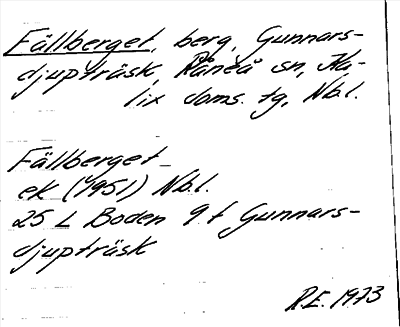 Fällberget, berg, Gunnars-
djupträsk, Råneå sn, Ka-
lix doms. tg, Nb.l.
Fällberget
ek (1951) Nb.l.
25 L Boden 9 f Gunnars-
djupträsk
R.E. 1973